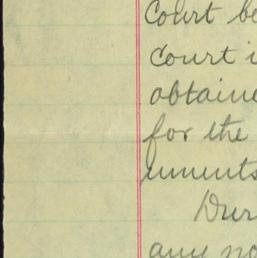 Court be
Court i
obtaine
for the
uments
Dur
any no